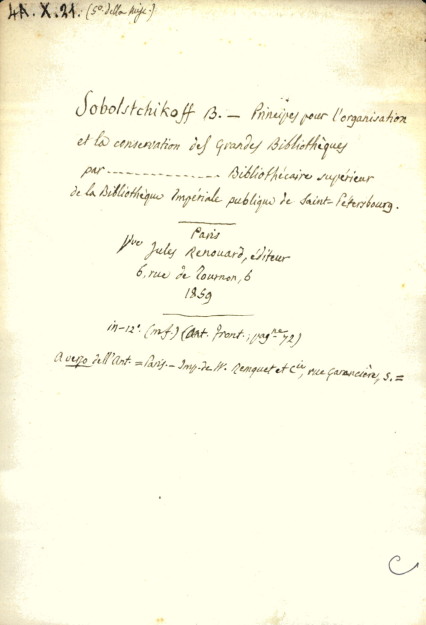 4A. X. 21. (5º. della Misc.)
Sobolstchikoff B. — Principes pour l'organisation
et la conservation des Grandes Bibliothèques
par -------------- Bibliothécaire supérieur
de la Bibliothèque Impériale publique de Saint-Pétersbourg.
Paris
Vve Jules Renouard, éditeur
6, rue de Tournon, 6
1859
in-12º. (m.f.) (Ant. Front.; pagne 72)
A verso dell'Ant. = Paris. — Imp. de W. Remquet et Cie, rue Garancière, 5. =
C